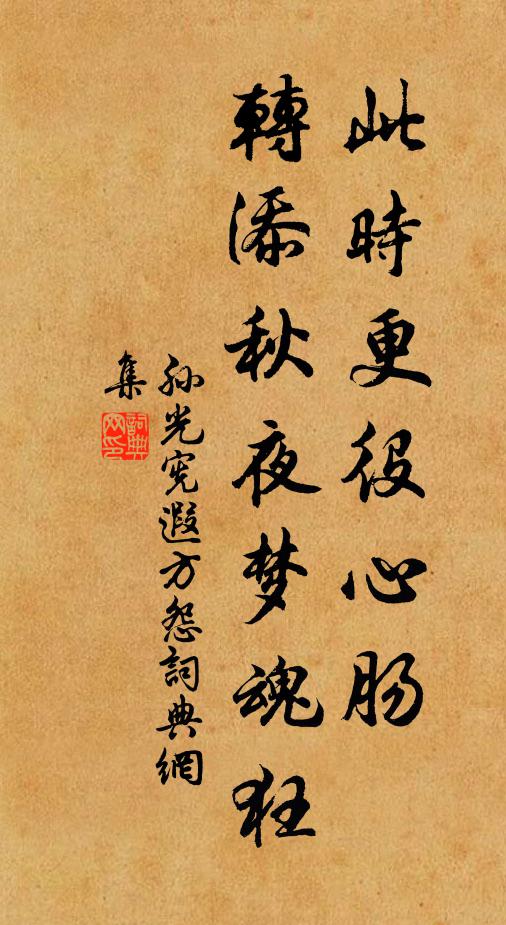 此時更役心肠
轉添秋夜梦魂狂
孙光宪遐方怨詞典網
集
詞典
网印